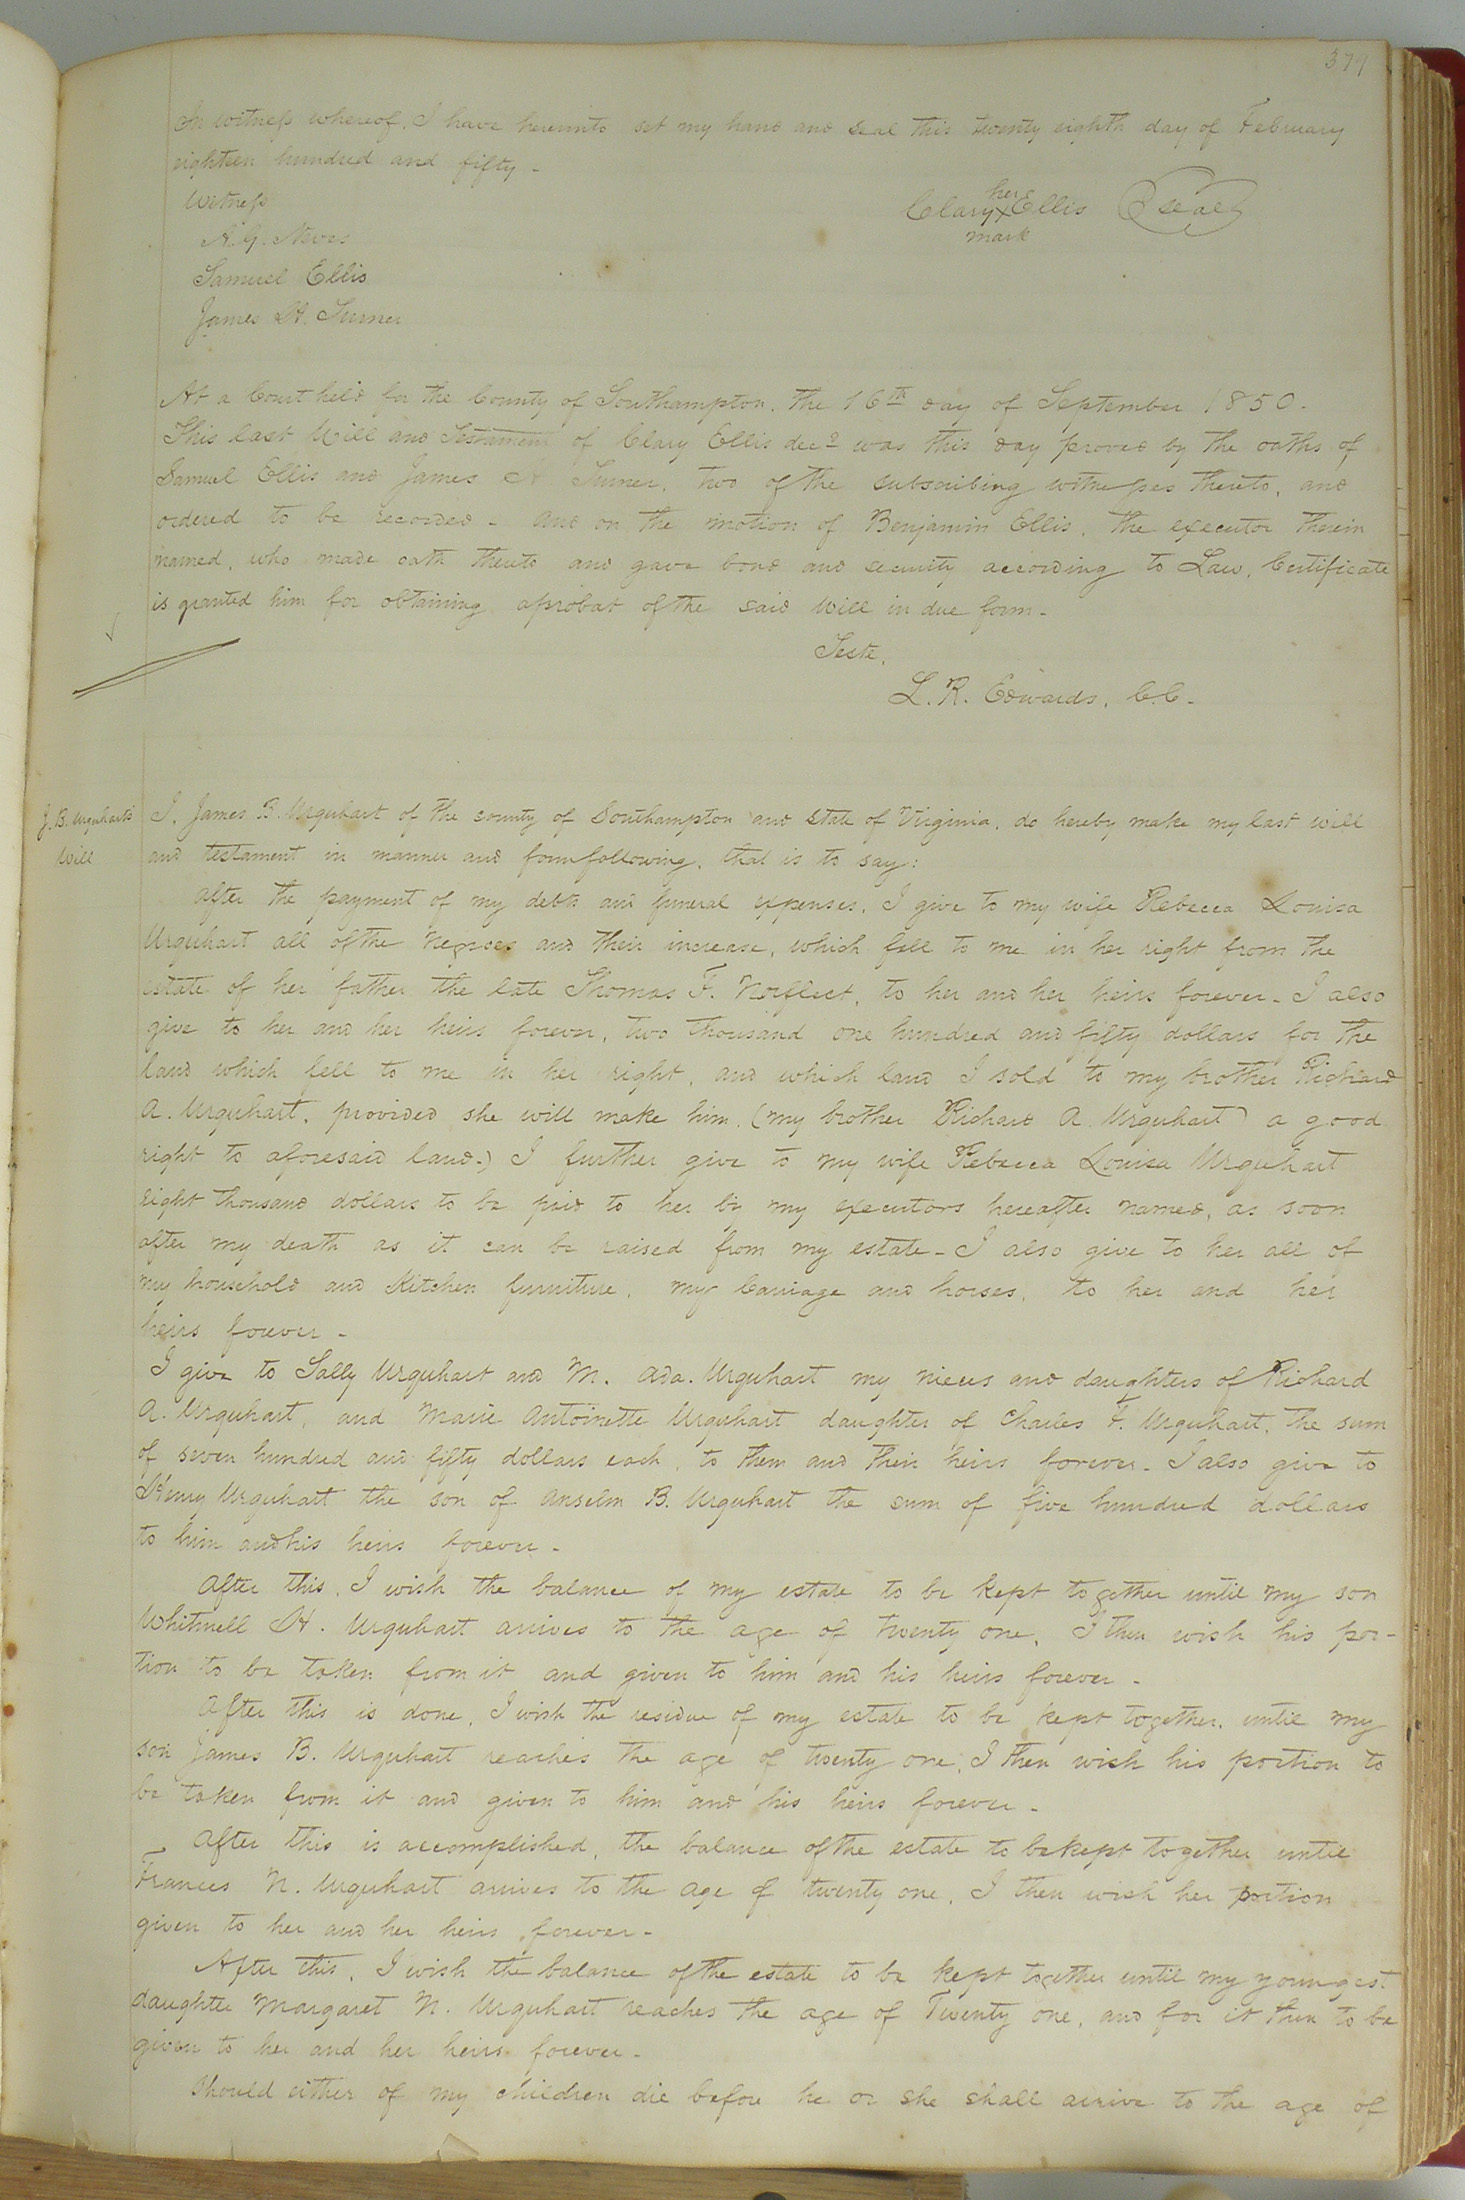 377
In witness whereof, I have hereunto set my hand and seal this twenty eighth day of February
eighteen hundred and fifty -
Witness
her
Clary X Ellis seal
mark
A. G.
Samuel Ellis
James H. Turner
At a Court held for the County of Southampton, the 16th day of September 1850.
This last Will and Testament of Clary Ellis decd was this day proved by the oaths of
Samuel Ellis and James H Turner, two of the subscribing witnesses thereto, and
ordered to be recorded - And on the motion of Benjamin Ellis, the executor therein
named, who made oath thereto and gave bond and security according to Law, Certificate
is granted him for obtaining a probat of the said Will in due form -
Teste,
L. R. Edwards, C.C.
J. B. Urquhart's
Will
I, James B. Urquhart of the county of Southampton and State of Virginia, do hereby make my last will
and testament in manner and form following, that is to say:
After the payment of my debts and funeral expenses, I give to my wife Rebecca Louisa
Urquhart all of the Negroes and their increase, which fell to me in her right from the
estate of her father the late Thomas F. Norfleet, to her and her heirs forever - I also
give to her and her heirs forever, two thousand one hundred and fifty dollars for the
land which fell to me in her right, and which land I sold to my brother Richard
A. Urquhart, provided she will make him, (my brother Richard A. Urquhart) a good
right to aforesaid land.) I further give to my wife Rebecca Louisa Urquhart
eight thousand dollars to be paid to her by my executors hereafter named, as soon
after my death as it can be raised from my estate - I also give to her all of
my household and Kitchen furniture, my Carriage and horses, to her and her
heirs forever -
I give to Sally Urquhart and M. Ada. Urquhart my nieces and daughters of Richard
A. Urquhart, and Marie Antoinette Urquhart daughter of Charles F. Urquhart, the sum
of seven hundred and fifty dollars each, to them and their heirs forever - I also give to
Henry Urquhart the son of Anselm B. Urquhart the sum of five hundred dollars
to him and his heirs forever -
After this, I wish the balance of my estate to be kept together until my son
Whitmell H. Urquhart arrives to the age of twenty one, I then wish his por-
tion to be taken from it and given to him and his heirs forever -
After this is done, I wish the residue of my estate to be kept together, until my
son James B. Urquhart reaches the age of twenty one, I then wish his portion to
be taken from it and given to him and his heirs forever -
After this is accomplished, the balance of the estate to be kept together until
Frances N. Urquhart arrives to the age of twenty one, I then wish her portion
given to her and her heirs forever -
After this, I wish the balance of the estate to be kept together until my youngest
daughter Margaret N. Urquhart reaches the age of Twenty one, and for it then to be
given to her and her heirs forever -
Should either of my children die before he or she shall arrive to the age of